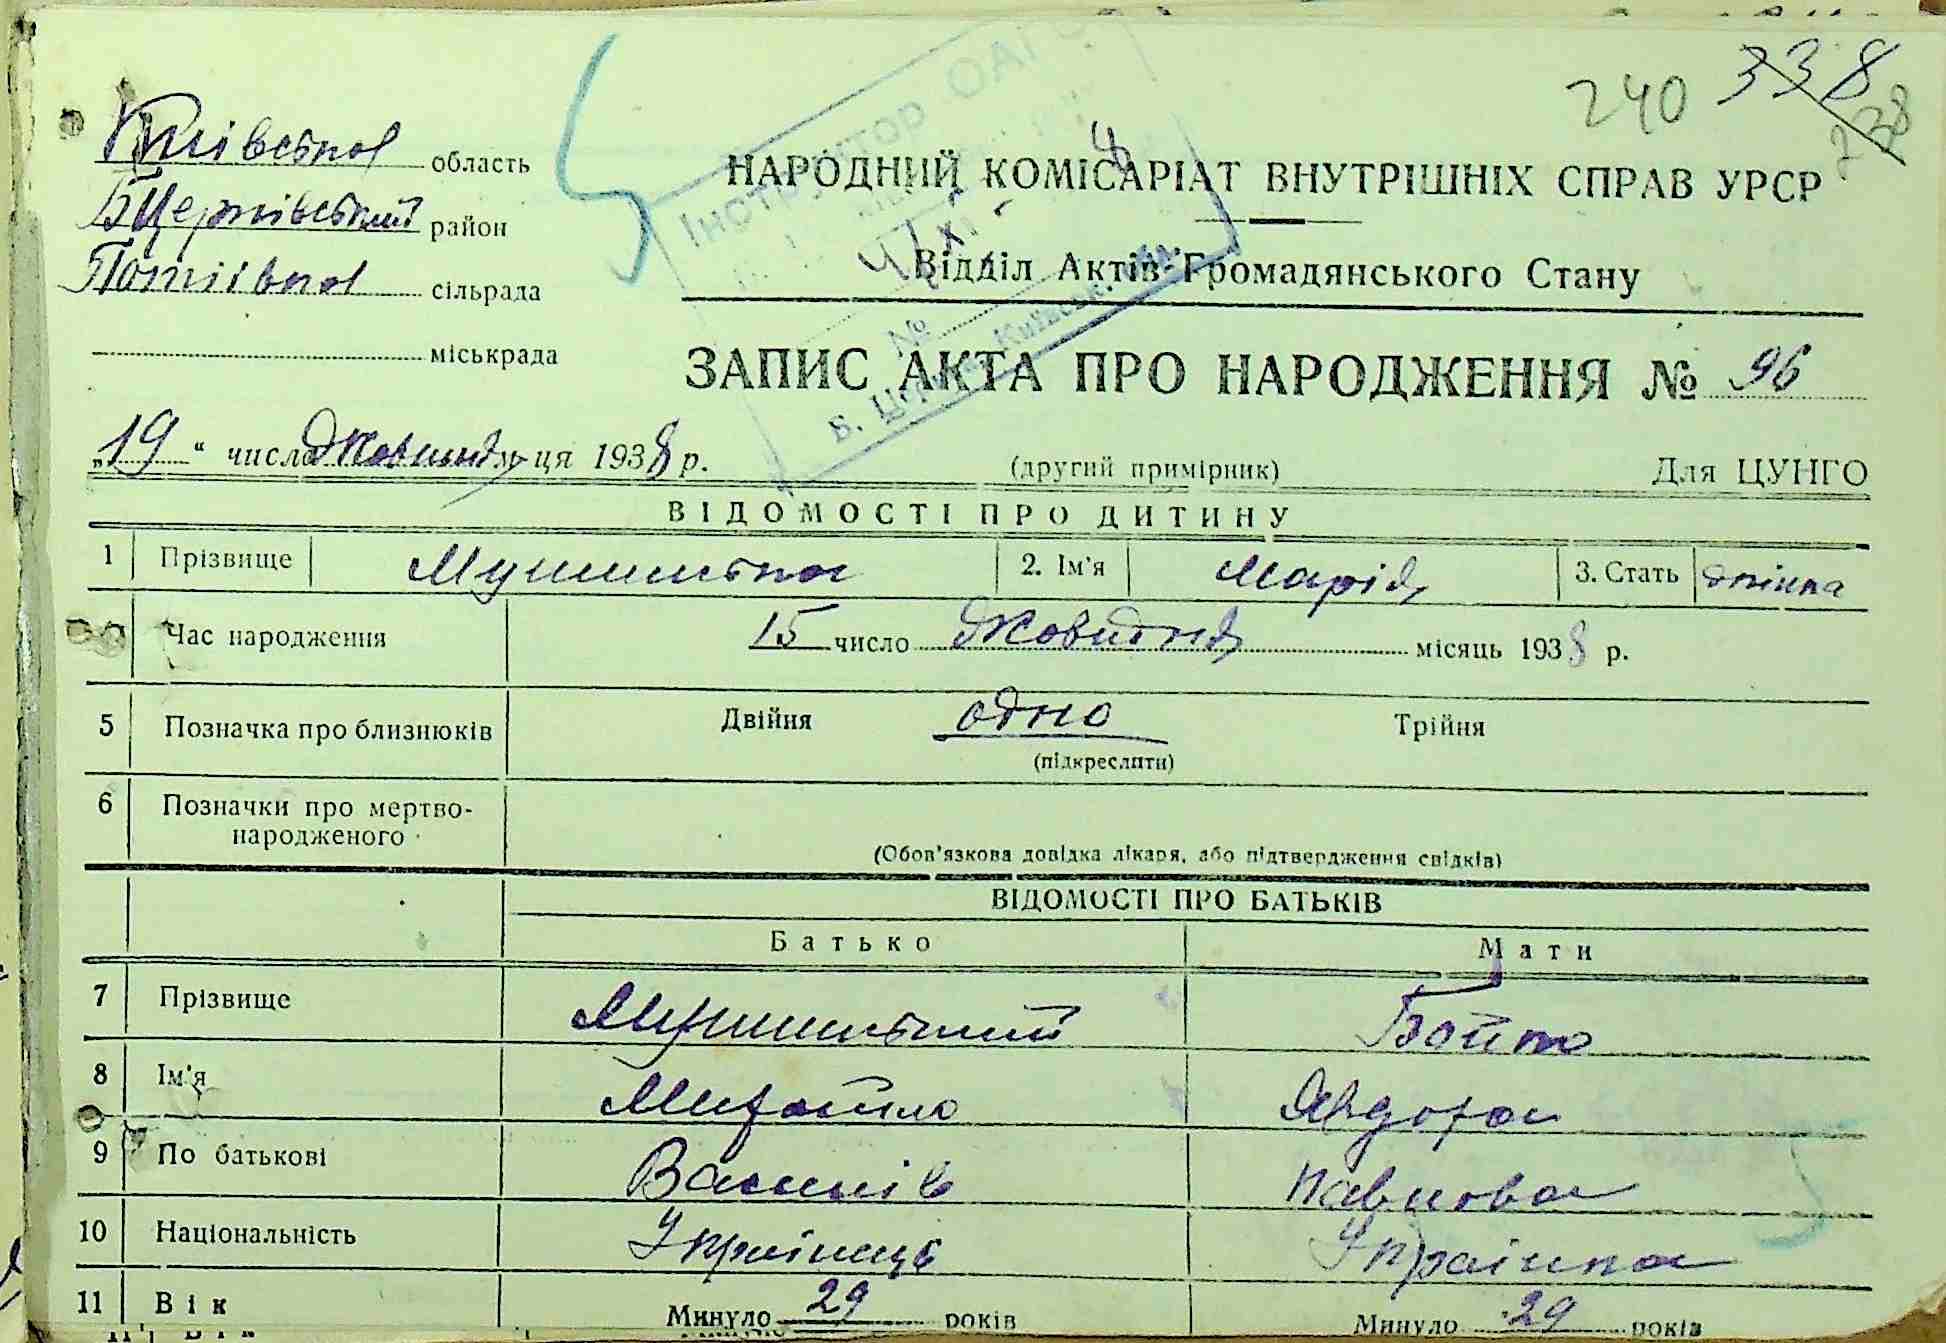 240 338
238
Київська область
БЦерківський район
Потіївка сільрада
міськрада
Інструктор ОАГС
4/XI
№
Б. Церква, Київськ.
НАРОДНИЙ КОМІСАРІАТ ВНУТРІШНІХ СПРАВ УРСР
Відділ Актів Громадянського Стану
ЗАПИС АКТА ПРО НАРОДЖЕННЯ № 96
„19“ число Жовтня м-ця 1938 р. (другий примірник) Для ЦУНГО
ВІДОМОСТІ ПРО ДИТИНУ
1 Прізвище 2. Ім'я Марія 3. Стать жінка
Час народження 15 число Жовтня місяць 1938 р.
5 Позначка про близнюків Двійня одно Трійня
(підкреслити)
6 Позначки про мертво-
народженого
(Обов'язкова довідка лікаря, або підтвердження свідків)
ВІДОМОСТІ ПРО БАТЬКІВ
Батько Мати
7 Прізвище Бойко
8 Ім'я Михайло Явдоха
9 По батькові Василів Павлова
10 Національність Українець Українка
11 Вік Минуло 29 років Минуло 29 років